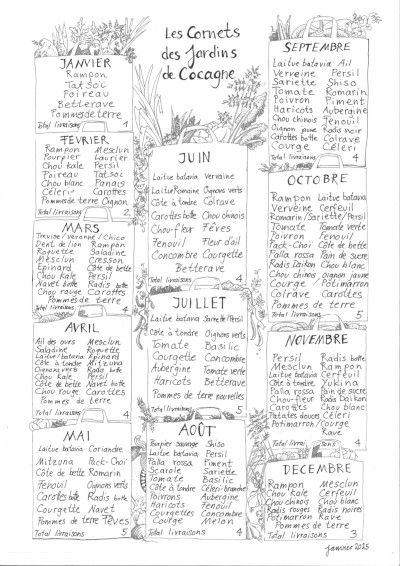 Les Cornets
des Jardins
de Cocagne
JANVIER
Rampon
Tatsoï
Poireau
Betterave
Pommes de terre
Total livraisons 1
FÉVRIER
Rampon Mesclun
Pourpier Laurier
Chou Kale Persil
Poireau Tatsoï
Chou blanc Panais
Céleri Carottes
Pommes de terre Oignon
Total livraisons 2
MARS
Trevise/Veronne/Chico
Dent de lion Rampon
Roquette Saladine
Mesclun Cresson
Épinard Côte de bette
Chou Kale Persil
Navet botte Radis botte
Chou rouge Carottes
Pommes de terre
Total livraisons 4
AVRIL
Ail des ours Mesclun
Saladine Roquette
Laitue/batavia Épinard
Côte à tondre Mitzuna
Oignons verts Radis botte
Chou Kale Persil
Côte de bette Navet botte
Chou rouge Carottes
Pommes de terre
Total livraisons 4
MAI
Laitue batavia Coriandre
Mitzuna Pack-Choï
Côte de bette Romarin
Fenouil Oignons verts
Carottes botte Radis botte
Courgette Navet
Pommes de terre Fèves
Total livraisons 5
JUIN
Laitue batavia Verveine
Laitue Romaine Oignons verts
Côte à tondre Colrave
Carottes botte Chou chinois
Chou-fleur Fèves
Fenouil Fleur d'ail
Concombre Courgette
Betterave
Total livraisons 4
JUILLET
Laitue batavia Sariette/Persil
Côte à tondre Oignons verts
Tomate Basilic
Courgette Concombre
Aubergine Tomate verte
Haricots Betterave
Pommes de terre nouvelles
Total livraisons 5
AOÛT
Pourpier sauvage Shiso
Laitue batavia Persil
Palla rossa Piment
Scarole Sariette
Tomate Basilic
Côte à tondre Céleri-branche
Poivrons Aubergine
Haricots Fenouil
Courgettes Concombre
Courge Melon
Total livraisons 4
SEPTEMBRE
Laitue batavia Ail
Verveine Persil
Sariette Shiso
Tomate Romarin
Poivron Piment
Haricots Aubergine
Chou chinois Fenouil
Oignon jaune Radis noir
Carottes botte Colrave
Courge Céleri
Total livraisons 4
OCTOBRE
Rampon Laitue batavia
Verveine Cerfeuil
Romarin/Sariette/Persil
Tomate Tomate verte
Poivron Fenouil
Pack-Choï Côte de bette
Palla rossa Pain de sucre
Radis Daïkon Chou blanc
Chou chinois Oignon jaune
Courge Potimarron
Colrave Carottes
Pommes de terre
Total livraisons 5
NOVEMBRE
Persil Radis botte
Mesclun Rampon
Laitue batavia Cerfeuil
Côte à tondre Yukina
Palla rossa Pain de sucre
Chou-fleur Radis Daïkon
Carottes Chou blanc
Patates douces Céleri
Potimarron/Courge
Rave
Total livraisons 4
DECEMBRE
Rampon Mesclun
Chou Kale Cerfeuil
Chou chinois Chou blanc
Radis rouges Radis noires
Potimarron Rave
Pommes de terre
Total livraisons 3
janvier 2025